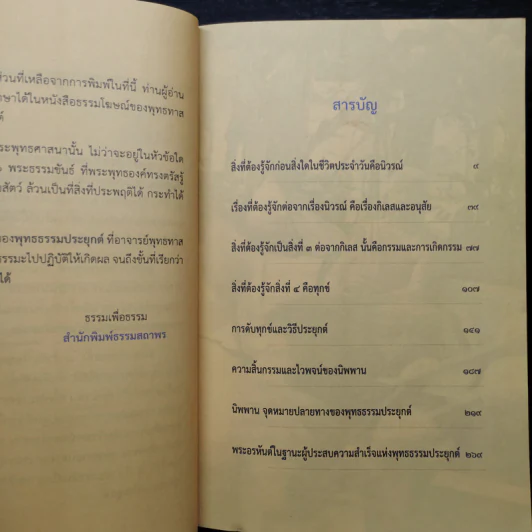 ส่วนที่เหลือจากการพิมพ์ในที่นี้ ท่านผู้อ่าน
ษาได้ในหนังสือธรรมโฆษณ์ของพุทธทาส
ต์
ระพุทธศาสนานั้น ไม่ว่าจะอยู่ในหัวข้อใด
พระธรรมขันธ์ ที่พระพุทธองค์ทรงตรัสรู้
สัตว์ ล้วนเป็นที่สิ่งที่ประพฤติได้ กระทำได้
ของพุทธธรรมประยุกต์ ที่อาจารย์พุทธทาส
ธรรมะไปปฏิบัติให้เกิดผล จนถึงขั้นที่เรียกว่า
ได้
ธรรมเพื่อธรรม
สำนักพิมพ์ธรรมสถาพร
สารบัญ
สิ่งที่ต้องรู้จักก่อนสิ่งใดในชีวิตประจำวันคือนิวรณ์
เรื่องที่ต้องรู้จักต่อจากเรื่องนิวรณ์ คือเรื่องกิเลสและอนุสัย ๓๙
สิ่งที่ต้องรู้จักเป็นสิ่งที่ ๓ ต่อจากกิเลส นั้นคือกรรมและการเกิดกรรม ๗๗
สิ่งที่ต้องรู้จักสิ่งที่ ๔ คือทุกข์ ๑๐๗
การดับทุกข์และวิธีประยุกต์ ๑๔๑
ความสิ้นกรรมและไวพจน์ของนิพพาน ๑๘๗
นิพพาน จุดหมายปลายทางของพุทธธรรมประยุกต์ ๒๑๙
พระอรหันต์ในฐานะผู้ประสบความสำเร็จแห่งพุทธธรรมประยุกต์ ๒๖๙